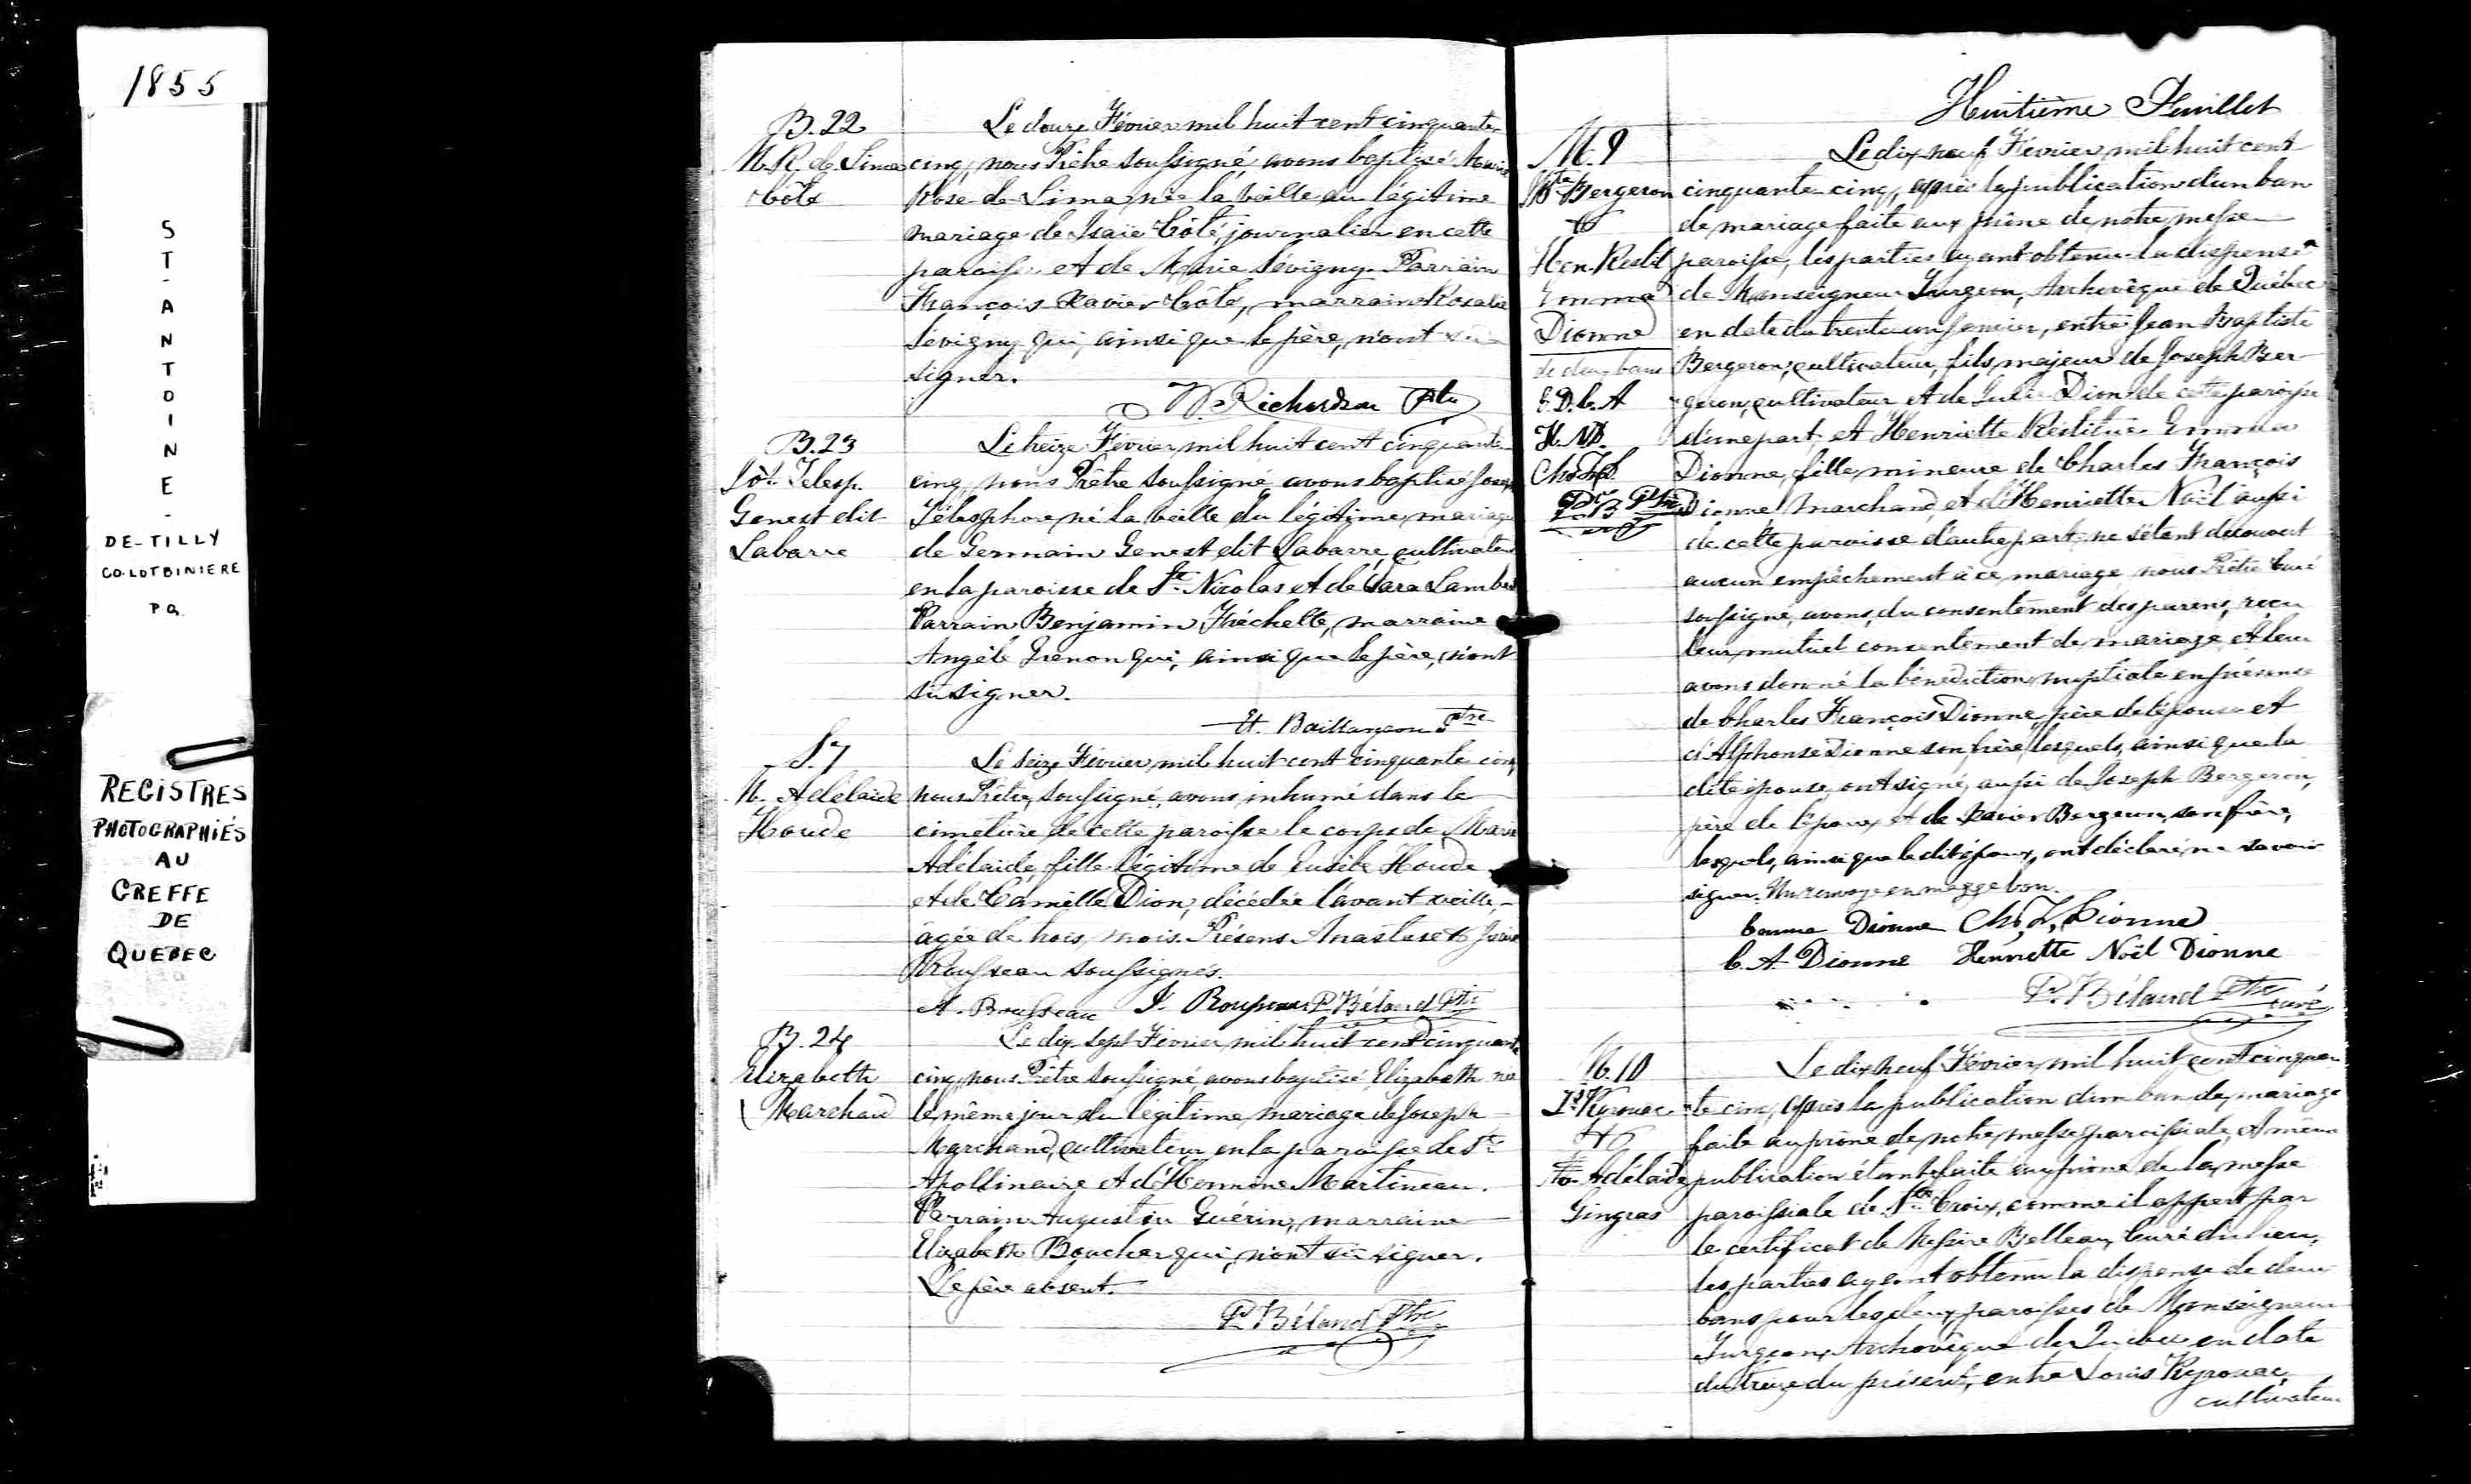 1855
ST-ANTOINE-
DE-TILLY
CO. LOTBINIERE
P.Q.
REGISTRES
PHOTOGRAPHIÉS
AU
GREFFE
DE
QUEBEC
B. 22
M. R. de Lima
Côté
Le douze Février mil huit cent cinquante
cinq, nous Prêtre soussigné avons baptisé Marie
Rose de Lima, née la veille du légitime
mariage de Isaïe Côté, journalier en cette
paroisse et de Marie Sévigny. Parrain
François Xavier Côté, marraine Rosalie
Sévigny qui, ainsi que le père, n'ont su
signer.
W. Richardson Ptre
B. 23
Jos. Telesp.
Genest dit
Labarre
Le treize Février mil huit cent cinquante
cinq, nous Prêtre soussigné avons baptisé Joseph
Télesphore, né la veille du légitime mariage
de Germain Genest dit Labarre, cultivateur
en la paroisse de St. Nicolas et de Sara Lambert
Parrain Benjamin Fréchette, marraine
Angèle Grenon qui, ainsi que le père, n'ont
su signer.
Et. Baillargeon Ptre
S. 7
M. Adélaide
Houde
Le seize Février mil huit cent cinquante cinq
nous Prêtre, soussigné, avons inhumé dans le
cimetière de cette paroisse le corps de Marie
Adélaide, fille légitime de Eusèbe Houde
et de Camille Dion, décédée l'avant veille,
âgée de trois mois. Présens Anastase &
Rousseau soussignés.
A. Rousseau J. Rousseau P. Béland Ptre
B. 24
Elizabeth
Marchand
Le dix-sept Février mil huit cent cinquante
cinq, nous Prêtre soussigné, avons baptisé Elizabeth née
le même jour du légitime mariage de Joseph
Marchand, cultivateur en la paroisse de St.
Apollinaire et d'Hermine Martineau.
Parrain Augustin Guérin, marraine
Elizabeth Boucher qui n'ont su signer.
Le père absent.
P. Béland Ptre
Huitième Feuillet
M. 9
J. Bte Bergeron
&
Hen. Restit
Emma
Dionne
de deux bans
E. D. C. A
H. N. D.
Chs. F. D.
P. B. Ptre
Le dix neuf Février mil huit cent
cinquante cinq, après la publication d'un ban
de mariage faite aux prône de notre messe
paroisse, les parties ayant obtenu la dispense
de Monseigneur Turgeon, Archevêque de Québec
en date du trente un janvier, entre Jean Baptiste
Bergeron, cultivateur, fils majeur de Joseph Ber-
geron, cultivateur et de Julie Dion de cette paroisse
d'une part, et Henriette Restitue Emma
Dionne, fille mineure de Charles François
Dionne, Marchand, et d'Henriette Noël aussi
de cette paroisse d'autre part, ne s'étant découvert
aucun empêchement à ce mariage, nous Prêtre Curé
soussigné, avons, du consentement des parens, reçu
leur mutuel consentement de mariage et leur
avons donné la bénédiction nuptiale en présence
de Charles François Dionne, père de l'épouse et
d'Alphonse Dionne son frère, lesquels, ainsi que la
dite épouse, ont signé, aussi de Joseph Bergeron,
père de l'époux et de Xavier Bergeron, son frère,
lesquels, ainsi que le dit époux, ont déclaré ne savoir
signer. Un renvoye en marge bon.
Emma Dionne Chs. F. Dionne
C. A. Dionne Henriette Noël Dionne
P. Béland Ptre
curé
M. 10
Ls. Kyrouac
&
M. Adélaide
Gingras
Le dix neuf Février mil huit cent cinquan-
te cinq, après la publication d'un ban de mariage
faite au prône de notre messe paroissiale, et même
publication étant faite au prône de la messe
paroissiale de Ste Croix, comme il appert par
le certificat de Messire Belleau, Curé du lieu,
les parties ayant obtenu la dispense de deux
bans pour les deux paroisses de Monseigneur
Turgeon, Archevêque de Québec en date
du treize du présent, entre Louis Kyrouac,
cultivateur